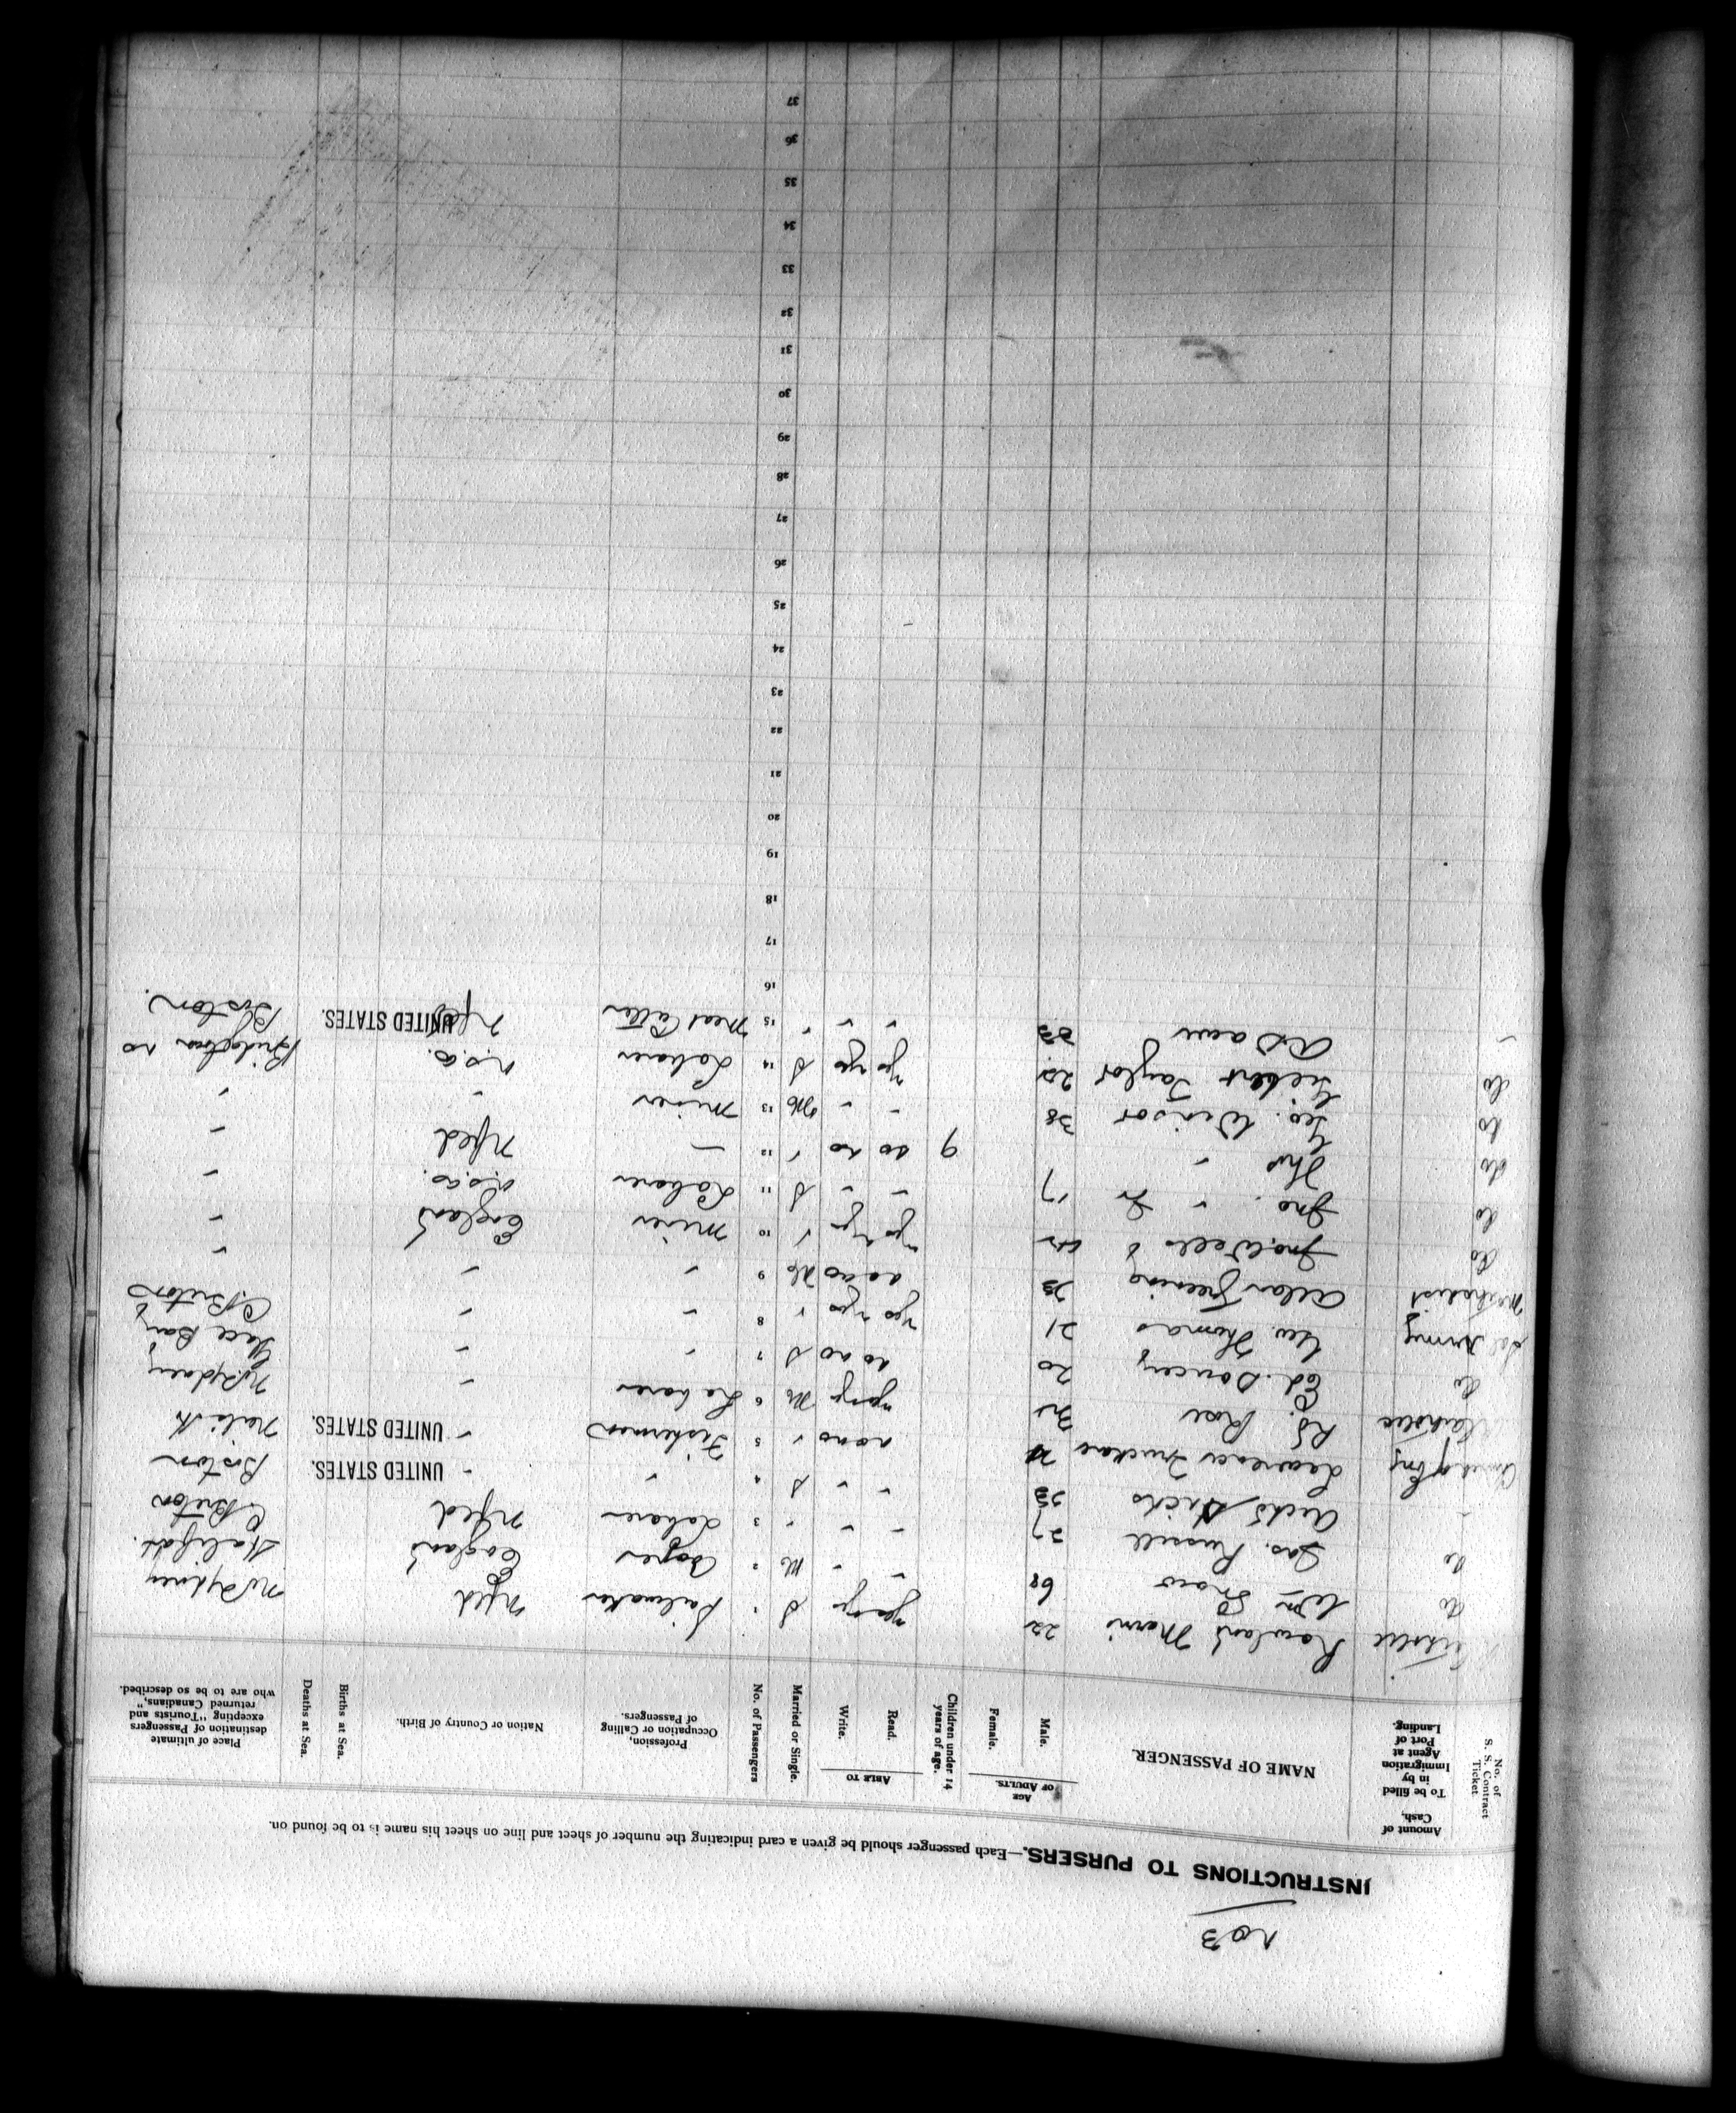 No 3
INSTRUCTIONS TO PURSERS.—Each passenger should be given a card indicating the number of sheet and line on sheet his name is to be found on.
No. of S. S. Contract Ticket
Amount of Cash,
To be filled in by Immigration Agent at Port of Landing.
NAME OF PASSENGER.
AGE OF ADULTS.
Male.
Female.
Children under 14 years of age.
ABLE TO
Read.
Write.
Married or Single.
No. of Passengers
Profession, Occupation or Calling of Passengers.
Nation or Country of Birth.
Births at Sea.
Deaths at Sea.
Place of ultimate destination of Passengers excepting "Tourists and returned Canadians," who are to be so described.
Rowland 22 S 1 Sailmaker Nfld N Sydney
do Wm 68 " " M 2 Cooper England Halifax.
do Jas. Russell 27 " " " 3 Labourer Nfld C. Breton
" Hicks 23 " " S 4 " " UNITED STATES. Boston
Church of Eng Lawrence no no " 5 Fisherman " UNITED STATES.
R. Rose M 6 Labourer " N. Sydney
do Ed. 20 no no S 7 " " Glace Bay
Sal Army Geo. Thomas 21 yes yes " 8 " " C. Breton
Methodist Allan 23 no no M 9 " " "
do Jno. Wells yes yes " 10 miner England "
do Jno. " Jr 17 " " S 11 Labourer U.S.A. "
do Thos " 9 no no " 12 — Nfld "
do Geo. Winsor 38 " " M 13 miner " "
do Taylor yes yes S 14 Labourer N.S.
" 33 " " " 15 Meat Cutter Nfld UNITED STATES. Boston.
16
17
18
19
20
21
22
23
24
25
26
27
28
29
30
31
32
33
34
35
36
37